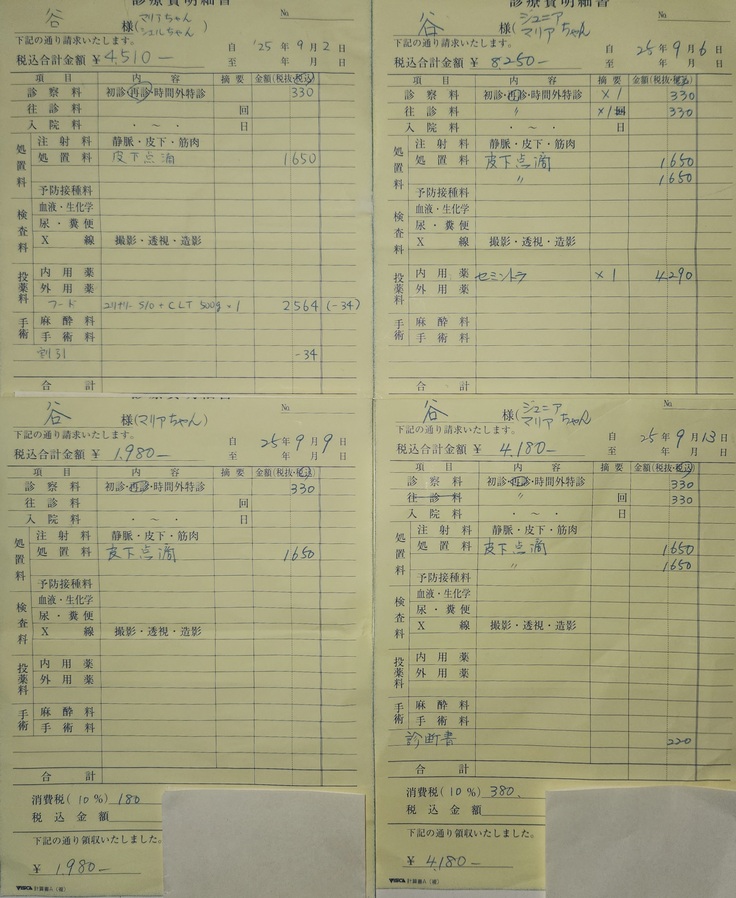 診療費明細書
谷 様(マリアちゃん シェルちゃん)
No.
下記の通り請求いたします。
自 '25 年 9 月 2 日
税込合計金額 ¥ 4,510-
至 年 月 日
項 目 内 容 摘 要 金額(税抜・税込)
診 察 料 初診・再診・時間外特診 330
往 診 料 回
入 院 料 ・ ~ ・ 日
処置料 注 射 料 静脈・皮下・筋肉
処 置 料 皮下点滴 1650
予防接種料
検査料 血液・生化学
尿・糞便
X 線 撮影・透視・造影
投薬料 内 用 薬
外 用 薬
フード ユリナリーS/O+CLT 500g×1 2564 (-34)
手術 麻 酔 料
手 術 料
割引 -34
合 計
診療費明細書
谷 様(ジュニア マリアちゃん)
No.
下記の通り請求いたします。
自 25 年 9 月 6 日
税込合計金額 ¥ 8,250-
至 年 月 日
項 目 内 容 摘 要 金額(税抜・税込)
診 察 料 初診・再診・時間外特診 ×1 330
往 診 料 〃 ×1回 330
入 院 料 ・ ~ ・ 日
処置料 注 射 料 静脈・皮下・筋肉
処 置 料 皮下点滴 1650
〃 1650
予防接種料
検査料 血液・生化学
尿・糞便
X 線 撮影・透視・造影
投薬料 内 用 薬 セミントラ ×1 4,290
外 用 薬
手術 麻 酔 料
手 術 料
合 計
診療費明細書
谷 様(マリアちゃん)
No.
下記の通り請求いたします。
自 25 年 9 月 9 日
税込合計金額 ¥ 1,980-
至 年 月 日
項 目 内 容 摘 要 金額(税抜・税込)
診 察 料 初診・再診・時間外特診 330
往 診 料 回
入 院 料 ・ ~ ・ 日
処置料 注 射 料 静脈・皮下・筋肉
処 置 料 皮下点滴 1650
予防接種料
検査料 血液・生化学
尿・糞便
X 線 撮影・透視・造影
投薬料 内 用 薬
外 用 薬
手術 麻 酔 料
手 術 料
合 計
消費税(10%) 180
税 込 金 額
下記の通り領収いたしました。
¥ 1,980-
谷 様(ジュニア マリアちゃん
No.
下記の通り請求いたします。
自 25 年 9 月 13 日
税込合計金額 ¥ 4,180-
至 年 月 日
項 目 内 容 摘 要 金額(税抜・税込)
診 察 料 初診・再診・時間外特診 330
往 診 料 〃 回 330
入 院 料 ・ ~ ・ 日
処置料 注 射 料 静脈・皮下・筋肉
処 置 料 皮下点滴 1650
〃 1650
予防接種料
検査料 血液・生化学
尿・糞便
X 線 撮影・透視・造影
投薬料 内 用 薬
外 用 薬
手術 麻 酔 料
手 術 料
診断書 220
合 計
消費税(10%) 380.
税 込 金 額
下記の通り領収いたしました。
¥ 4,180-